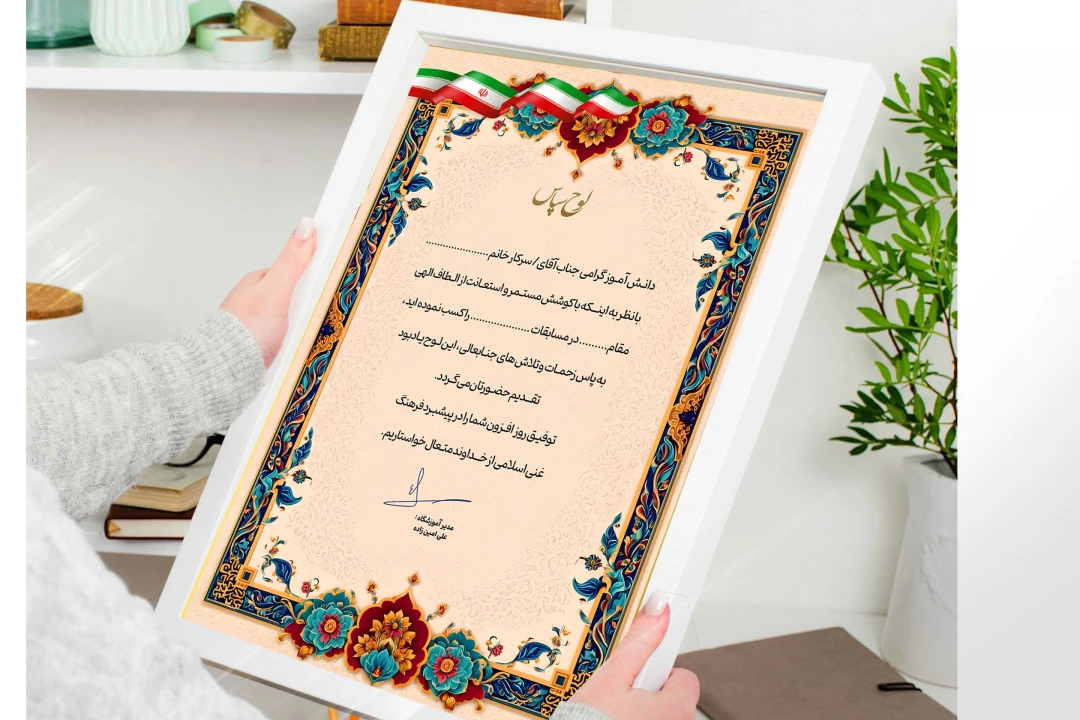 لوح سپاس
دانش آموز گرامی جناب آقای / سرکار خانم ....................
با نظر به اینکه با کوشش مستمر و استعانت از الطاف الهی
مقام......... در مسابقات ................... را کسب نموده اید،
به پاس زحمات و تلاش های جنابعالی، این لوح یادبود
تقدیم حضورتان می گردد.
توفیق روز افزون شما را در پیشبرد فرهنگ
غنی اسلامی از خداوند متعال خواستاریم.
مدیر آموزشگاه :
علی امین زاده